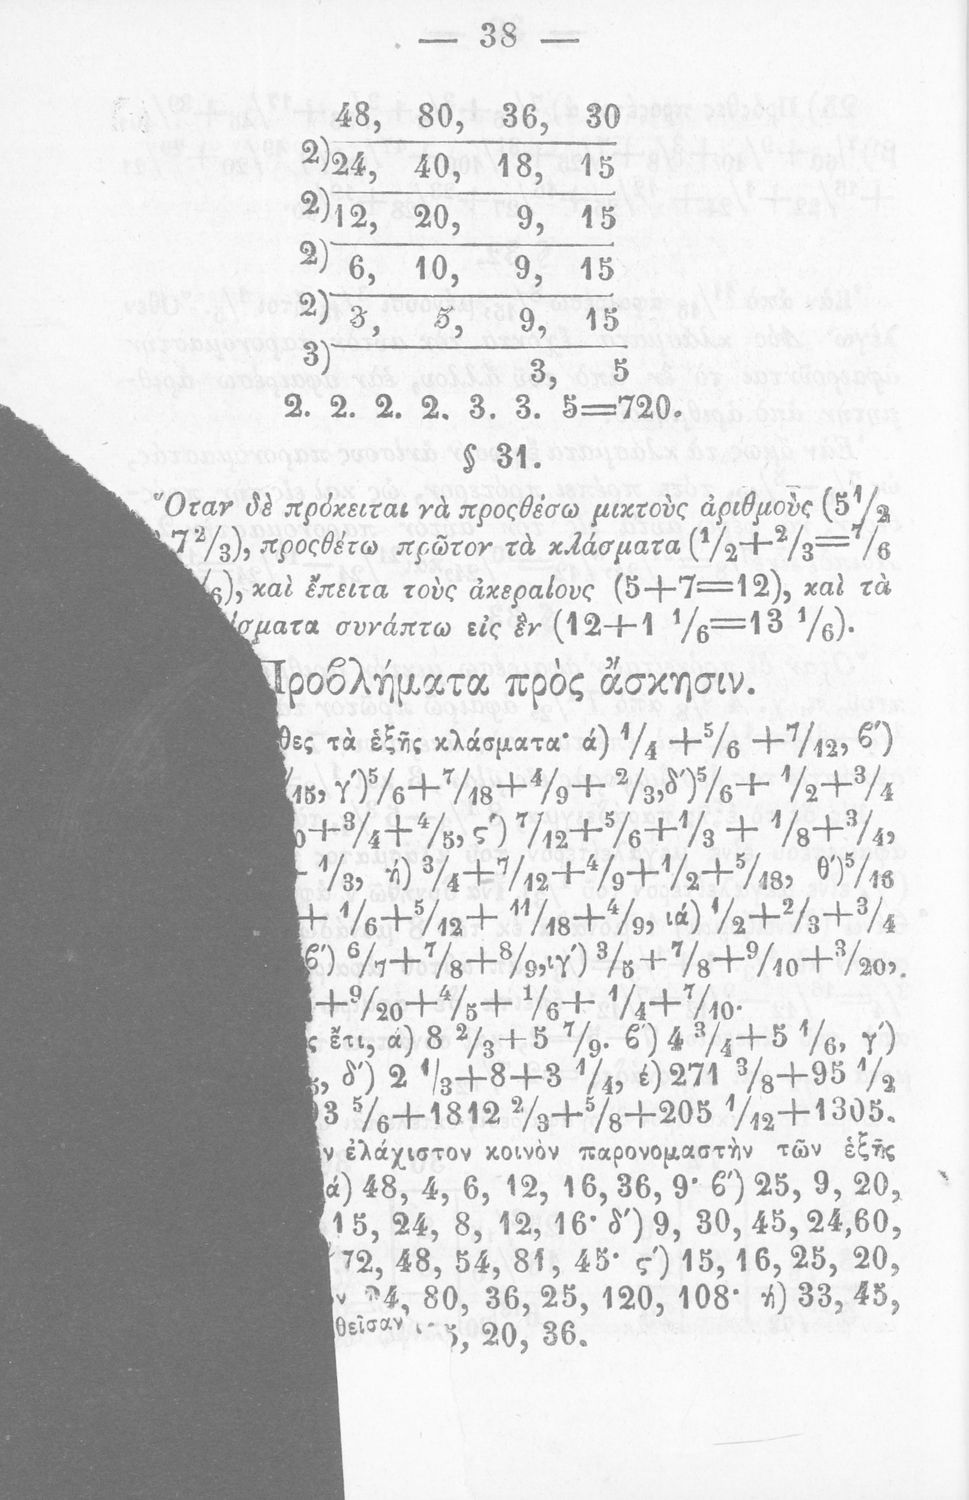 — 38 —
48, 80, 36, 30
2) 24, 40, 18, 15
2) 12, 20, 9, 15
2) 6, 10, 9, 15
2) 3, 5, 9, 15
3) 3, 5
2. 2. 2. 2. 3. 3. 5=720.
§ 31.
Ὅταν δὲ πρόκειται νὰ προςθέσω μικτοὺς ἀριθμοὺς (5 1/2
7 2/3), προςθέτω πρῶτον τὰ κλάσματα (1/2+2/3=7/6
/6), καὶ ἔπειτα τοὺς ἀκεραίους (5+7=12), καὶ τὰ
σματα συνάπτω εἰς ἓν (12+1 1/6=13 1/6).
Προβλήματα πρὸς ἄσκησιν.
θες τὰ ἑξῆς κλάσματα· ά) 1/4 +5/6 +7/12, ϐ́)
/15, γ́) 5/6+ 7/18+4/9+ 2/3, δ́) 5/6+ 1/2+3/4
0+3/4+4/5, ς́) 7/12+5/6+1/3 + 1/8+3/4,
1/3, ή) 3/4+7/12+4/9+1/2+5/18, θ́) 5/16
+ 1/6+5/12+ 11/18+4/9, ιά) 1/2+2/3+3/4
ϐ́) 6/7+7/8+8/9, ιγ́) 3/5+7/8+9/10+3/20,
+9/20+4/5+ 1/6+ 1/4+7/10.
ς ἔτι, ά) 8 2/3+5 7/9. ϐ́) 4 3/4+5 1/6, γ́)
5, δ́) 2 1/3+8+3 1/4, έ) 271 3/8+95 1/2
93 5/6+1812 2/3+5/8+205 1/12+1305.
ν ἐλάχιστον κοινὸν παρονομαστὴν τῶν ἑξῆς
ά) 48, 4, 6, 12, 16, 36, 9· ϐ́) 25, 9, 20,
15, 24, 8, 12, 16· δ́) 9, 30, 45, 24, 60,
72, 48, 54, 81, 45· ς́) 15, 16, 25, 20,
ν 24, 80, 36, 25, 120, 108· ή) 33, 45,
θεῖσαν 5, 20, 36.